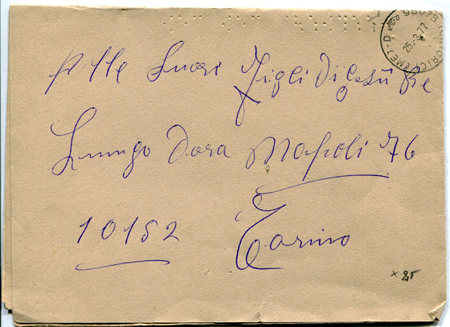 Alle Suore Figli Di Gesù Re
Lungo Dora Napoli 76
10152 Torino
x 25